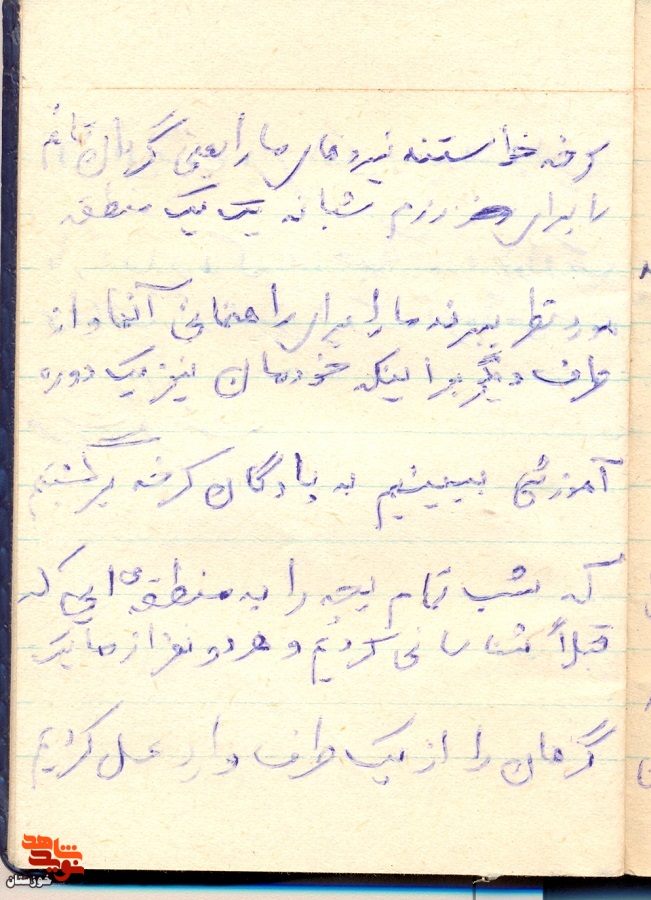 کرخه خواستند نیروهای ما را یعنی گردان قائم
را برای رزم شبانه یک یک منطقه
مورد نظر ببرند ما را برای راهنمائی آنها و از
طرف دیگر برا اینکه خودمان نیز یک دوره
آموزشی ببینیم به پادگان کرخه برگشتیم
که شب تمام بچه را به منطقه ایی که
قبلاً شناسائی کردیم و هر دو نفر از ما یک
گرهان را از یک طرف وارد عمل کردیم
شاهد
نوید
خوزستان